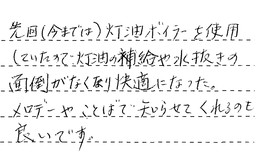 先回(今までは)灯油ボイラーを使用
していたので灯油の補給や水抜きの
面倒がなくなり快適になった。
メロデーやことばで知らせてくれるのも
良いです。